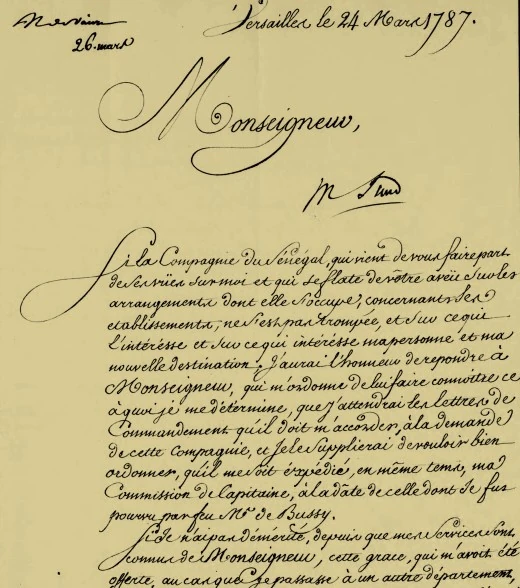 Versailles le 24 Mars 1787.
26. mars
Monseigneur,
Si la Compagnie du Sénégal, qui vient de vous faire part
de ses vües sur moi et qui se flate de vôtre aveü sur les
arrangements dont elle s'occupe, concernant ses
etablissements, ne s'est pas trompée, et sur ce qui
l'intéresse et sur ce qui intéresse ma personne et ma
nouvelle destination. J'aurai l'honneur de repondre à
Monseigneur, qui m'ordonne de lui faire connoître ce
à quoi je me détermine, que j'attendrai les lettres de
Commandement qu'il doit m'accorder, à la demande
de cette Compagnie, et Je le Supplierai de vouloir bien
ordonner, qu'il me soit éxpédié, en même tems, ma
Commission de Capitaine, à la dâte de celle dont Je fus
pourvu par feu Mr. de Bussy.
Si Je n'ai pas démérité, depuis que mes Services sont
connus de Monseigneur, cette grace, qui m'avoit été
offerte, au cas que je passasse à un autre département,